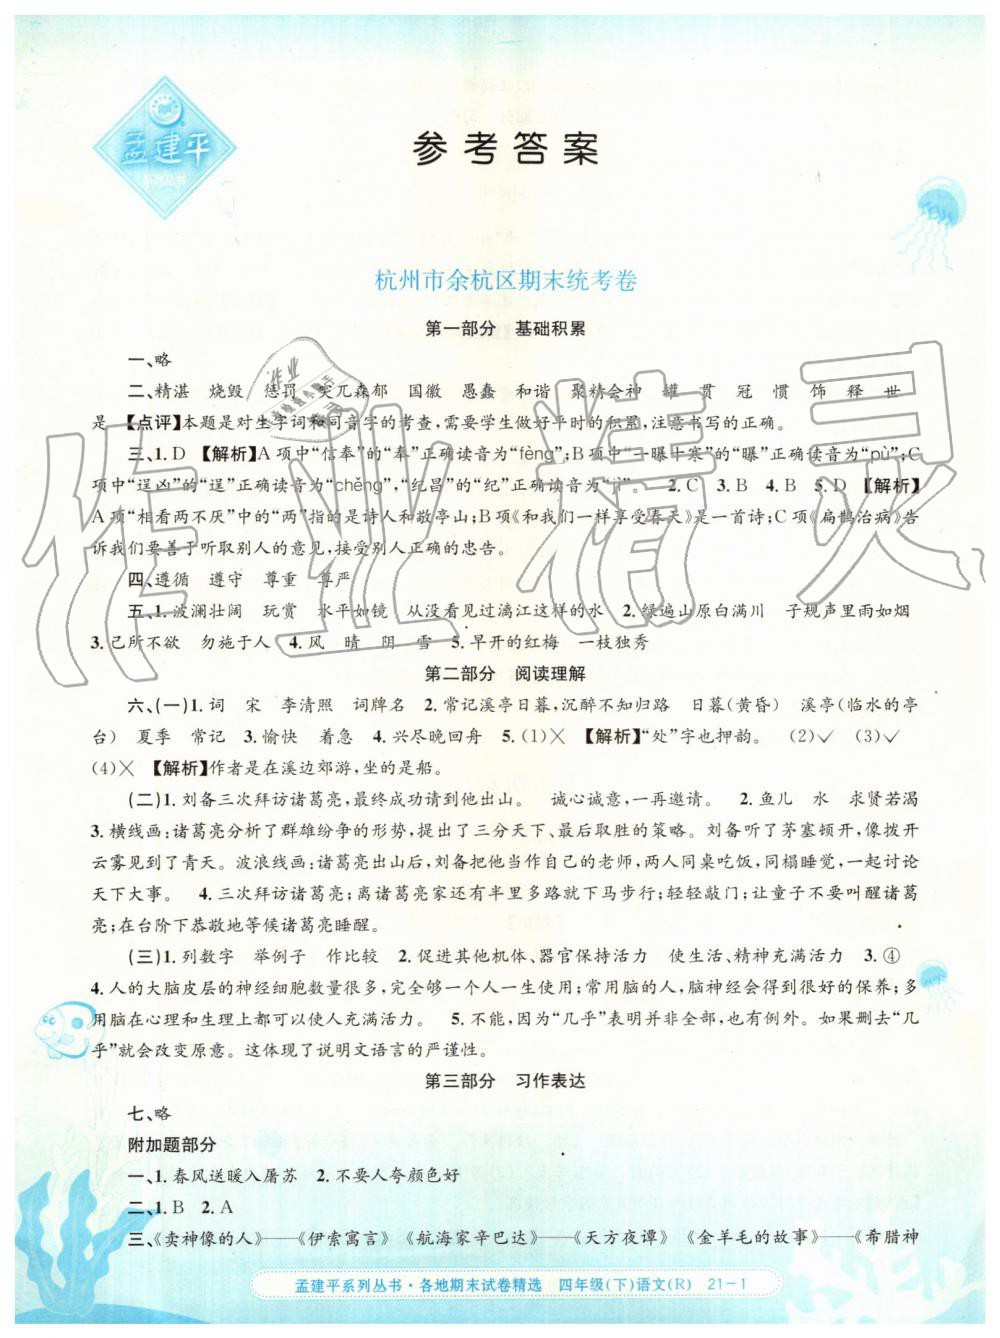 孟建平
参考答案
杭州市余杭区期末统考卷
第一部分 基础积累
一、略
二、精湛 烧毁 惩罚 突兀森郁 国徽 愚蠢 和谐 聚精会神 罐 贯 冠 惯 饰 释 世
是 【点评】本题是对生字词和同音字的考查,需要学生做好平时的积累,注意书写的正确。
三、1. D 【解析】A项中“信奉”的“奉”正确读音为“fèng”;B项中“一曝十寒”的“曝”正确读音为“pù”;C
项中“逞凶”的“逞”正确读音为“chěng”,“纪昌”的“纪”正确读音为“jǐ”。 2. C 3. B 4. B 5. D 【解析】
A项“相看两不厌”中的“两”指的是诗人和敬亭山;B项《和我们一样享受春天》是一首诗;C项《扁鹊治病》告
诉我们要善于听取别人的意见,接受别人正确的忠告。
四、遵循 遵守 尊重 尊严
五、1. 波澜壮阔 玩赏 水平如镜 从没看见过漓江这样的水 2. 绿遍山原白满川 子规声里雨如烟
3. 己所不欲 勿施于人 4. 风 晴 阴 雪 5. 早开的红梅 一枝独秀
第二部分 阅读理解
六、(一)1. 词 宋 李清照 词牌名 2. 常记溪亭日暮,沉醉不知归路 日暮(黄昏) 溪亭(临水的亭
台) 夏季 常记 3. 愉快 着急 4. 兴尽晚回舟 5. (1)× 【解析】“处”字也押韵。 (2)✓ (3)✓
(4)× 【解析】作者是在溪边郊游,坐的是船。
(二)1. 刘备三次拜访诸葛亮,最终成功请到他出山。 诚心诚意,一再邀请。 2. 鱼儿 水 求贤若渴
3. 横线画:诸葛亮分析了群雄纷争的形势,提出了三分天下、最后取胜的策略。刘备听了茅塞顿开,像拨开
云雾见到了青天。波浪线画:诸葛亮出山后,刘备把他当作自己的老师,两人同桌吃饭,同榻睡觉,一起讨论
天下大事。 4. 三次拜访诸葛亮;离诸葛亮家还有半里多路就下马步行;轻轻敲门;让童子不要叫醒诸葛
亮;在台阶下恭敬地等候诸葛亮睡醒。
(三)1. 列数字 举例子 作比较 2. 促进其他机体、器官保持活力 使生活、精神充满活力 3. ④
4. 人的大脑皮层的神经细胞数量很多,完全够一个人一生使用;常用脑,脑神经会得到很好的保养;多
用脑在心理和生理上都可以使人充满活力。 5. 不能,因为“几乎”表明并非全部,也有例外。如果删去“几
乎”就会改变原意。这体现了说明文语言的严谨性。
第三部分 习作表达
七、略
附加题部分
一、1. 春风送暖入屠苏 2. 不要人夸颜色好
二、1. B 2. A
三、《卖神像的人》——《伊索寓言》 《航海家辛巴达》——《天方夜谭》 《金羊毛的故事》——《希腊神
孟建平系列丛书·各地期末试卷精选 四年级(下)语文(R) 21-1
作业精灵